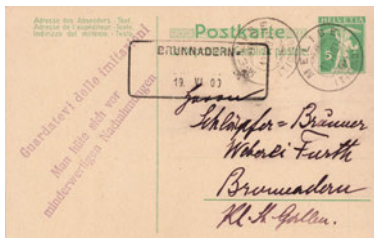 Adresse des Absenders - Text.
Adresse de l'expéditeur - Texte
Indirizzo del mittente - Testo
Postkarte.
HELVETIA
5
BRUNNADERN
19. VI. 09
Guardatevi delle imitazioni
Man hüte sich vor
minderwertigen Nachahmungen
Herrn
Schlüpfer-Brunner
Furth
Brunnadern
Kt. St. Gallen.